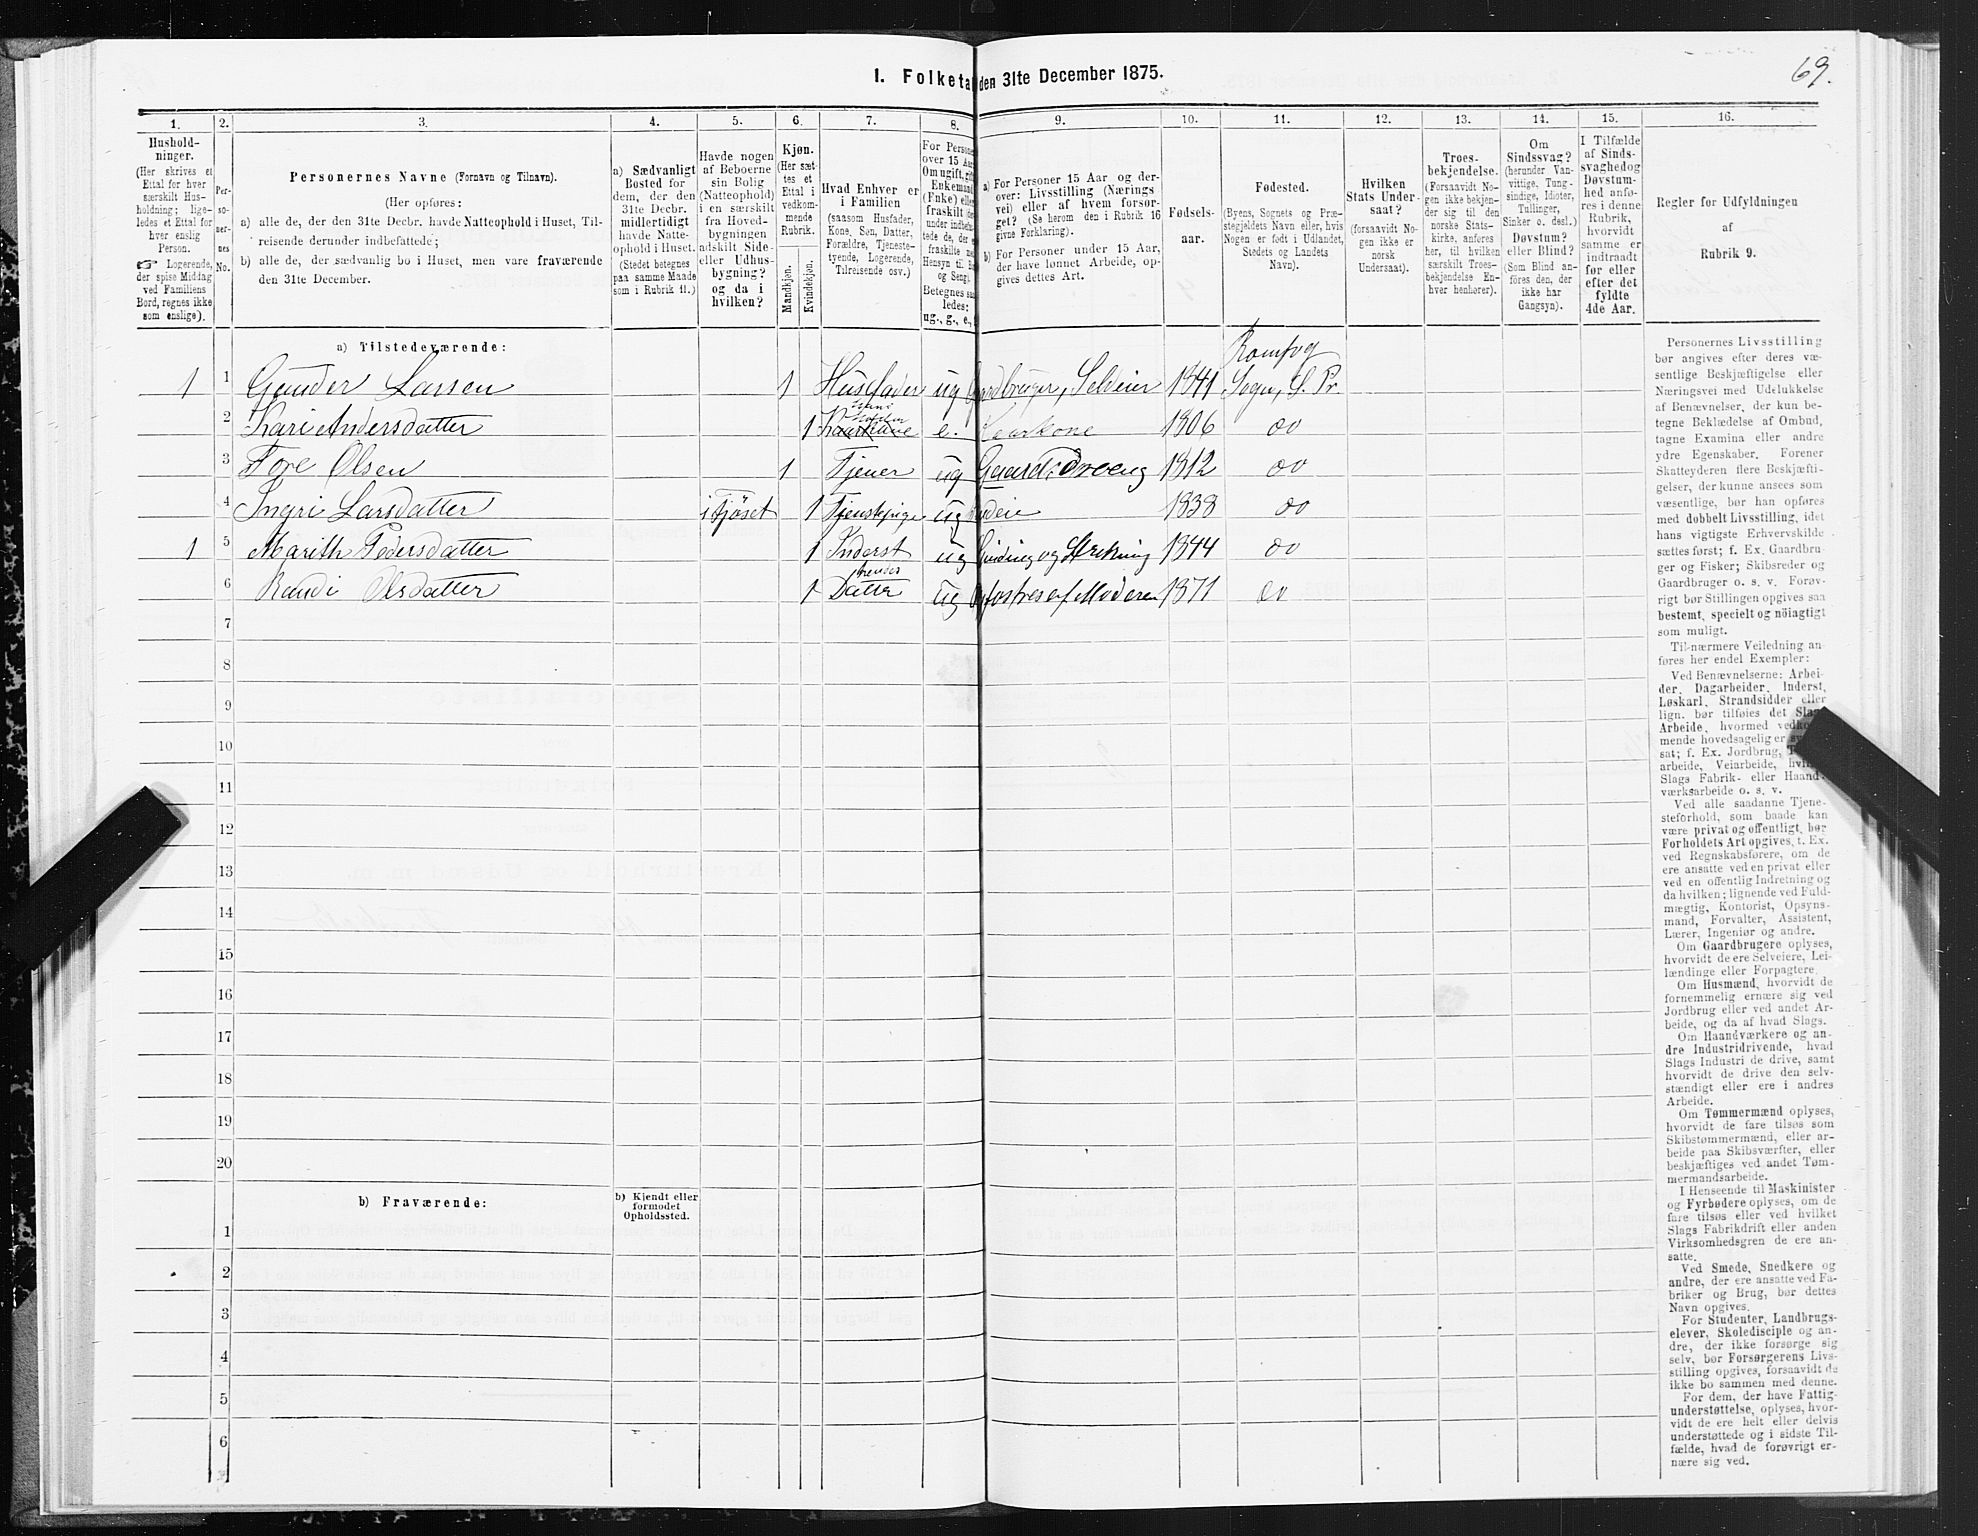 69.
1. Folketa den 31te December 1875.
1. 2. 3. 4. 5. 6. 7. 8. 9. 10. 11. 12. 13. 14. 15. 16.
Hushold-
ninger.
(Her skrives et
Ettal for hver
særskilt Hus-
holdning; lige-
ledes et Ettal for
hver enslig
Person.
☞ Logerende,
der spise Middag
ved Familiens
Bord, regnes ikke
som enslige).
Per-
so-
ner-
nes
No.
Personernes Navne (Fornavn og Tilnavn).
(Her opføres:
a) alle de, der den 31te Decbr. havde Natteophold i Huset, Til-
reisende derunder indbefattede;
b) alle de, der sædvanlig bo i Huset, men vare fraværende
den 31te December.
a) Sædvanligt
Bosted for
dem, der den
31te Decbr.
midlertidigt
havde Natte-
ophold i Huset.
(Stedet betegnes
paa samme Maade
som i Rubrik 11.)
Havde nogen
af Beboerne
sin Bolig
(Natteophold)
i en særskilt
fra Hoved-
bygningen
adskilt Side-
eller Udhus-
bygning?
og da i
hvilken?
Kjøn.
(Her sæt-
tes et
Ettal i
vedkom-
mende
Rubrik.
Mandkjøn.
Kvindekjøn.
Hvad Enhver er
i Familien
(saasom Husfader,
Kone, Søn, Datter,
Forældre, Tjeneste-
tyende, Logerende,
Tilreisende osv.)
For Persone
over 15 Aar
Om ugift, gift
Enkemand
(Enke) elle
fraskilt de
under indbefat
tede de, der e
fraskilte me
Hensyn til B
og Seng).
Betegnes sa
ledes:
ug., g., e.,
a) For Personer 15 Aar og der-
over: Livsstilling (Nærings
vei) eller af hvem forsør-
get? (Se herom den i Rubrik 16
givne Forklaring).
b) For Personer under 15 Aar,
der have lønnet Arbeide, op-
gives dettes Art.
Fødsels-
aar.
Fødested.
(Byens, Sognets og Præ-
stegjeldets Navn eller, hvis
Nogen er født i Udlandet,
Stedets og Landets
Navn).
Hvilken
Stats Under-
saat?
(forsaavidt No-
gen ikke er
norsk
Undersaat).
Troes-
bekjendelse.
(Forsaavidt No-
gen ikke bekjen-
der sig til den
norske Stats-
kirke, anføres
her, til hvilken
særskilt Troes-
bekjendelse En-
hver henhører).
Om
Sindssvag?
(herunder Van-
vittige, Tung-
sindige, Idioter,
Tullinger,
Sinker o. desl.)
Døvstum?
eller Blind?
(Som Blind an-
føres den, der
ikke har
Gangsyn).
I Tilfælde
af Sinds-
svaghed og
Døvstum-
hed anfø-
res i denne
Rubrik,
hvorvidt
samme er
indtraadt
før eller
efter det
fyldte
4de Aar.
Regler for Udfyldningen
af
Rubrik 9.
a) Tilstedeværende:
Romfog
1 1 Gunder Larsen 1 Husfader ug Gaardbruger, Seleier 1841 Sogn, S. Pr.
Hans
Moder
2 Kari Andersdatter 1 e. Kaarkone 1806 do
3 Tore Olsen 1 Tjener ug Gaardsdreng 1812 do
4 Ingri Larsdatter i Fjøset 1 Tjenstepige ug Budeie 1838 do
1 5 Marith Pedersdatter 1 Inderst ug Spinding og Strikning 1844 do
hendes
6 Randi Olsdatter 1 Datter ug Opfostres af Moderen 1871 do
7
8
9
10
11
12
13
14
15
16
17
18
19
20
b) Fraværende:
b) Kjendt eller
formodet
Opholdssted.
1
2
3
4
5
6
Personernes Livsstilling
bør angives efter deres væ-
sentlige Beskjæftigelse eller
Næringsvei med Udelukkelse
af Benævnelser, der kun be-
tegne Beklædelse af Ombud,
tagne Examina eller andre
ydre Egenskaber. Forener
Skatteyderen flere Beskjæfti-
gelser, der kunne ansees som
væsentlige, bør han opføres
med dobbelt Livsstilling, idet
hans vigtigste Erhvervskilde
sættes først; f. Ex. Gaardbru-
ger og Fisker; Skibsreder og
Gaardbruger o. s. v. Forøv-
rigt bør Stillingen opgives saa
bestemt, specielt og nöiagtigt
som muligt.
Til nærmere Veiledning an-
føres her endel Exempler:
Ved Benævnelserne: Arbei-
der, Dagarbeider, Inderst,
Løskarl, Strandsidder eller
lign. bør tilføies det Slags
Arbeide, hvormed vedkom-
mende hovedsagelig er sys
sat; f. Ex. Jordbrug, T
arbeide, Veiarbeide, hvil
Slags Fabrik- eller Haand-
værksarbeide o. s. v.
Ved alle saadanne Tjene-
steforhold, som baade kan
være privat og offentligt, bør
Forholdets Art opgives, t. Ex.
ved Regnskabsførere, om de
ere ansatte ved en privat eller
ved en offentlig Indretning og
da hvilken; lignende ved Fuld-
mægtig, Kontorist, Opsyns-
mand, Forvalter, Assistent,
Lærer, Ingeniør og andre.
Om Gaardbrugere oplyses,
hvorvidt de ere Selveiere, Lei-
lændinge eller Forpagtere.
Om Husmænd, hvorvidt de
fornemmelig ernære sig ved
Jordbrug eller ved andet Ar-
beide, og da af hvad Slags.
Om Haandværkere og an-
dre Industridrivende, hvad
Slags Industri de drive, samt
hvorvidt de drive den selv-
stændigt eller ere i andres
Arbeide.
Om Tømmermænd oplyses,
hvorvidt de fare tilsøs som
Skibstømmermænd, eller ar-
beide paa Skibsværfter, eller
beskjæftiges ved andet Tøm-
mermandsarbeide.
I Henseende til Maskinister
og Fyrbødere oplyses, om de
fare tilsøs eller ved hvilket
Slags Fabrikdrift eller anden
Virksomhedsgren de ere an-
satte.
Ved Smede, Snedkere og
andre, der ere ansatte ved Fa-
briker og Brug, bør dettes
Navn opgives.
For Studenter, Landbrugs-
elever, Skoledisciple og an-
dre, der ikke forsørge sig
selv, bør Forsørgerens Livs-
stilling opgives, forsaavidt de
ikke bo sammen med denne.
For dem, der have Fattig-
understøttelse, oplyses, hvor-
vidt de ere helt eller delvis
understøttede og i sidste Til-
fælde, hvad de forøvrigt er-
nære sig ved.